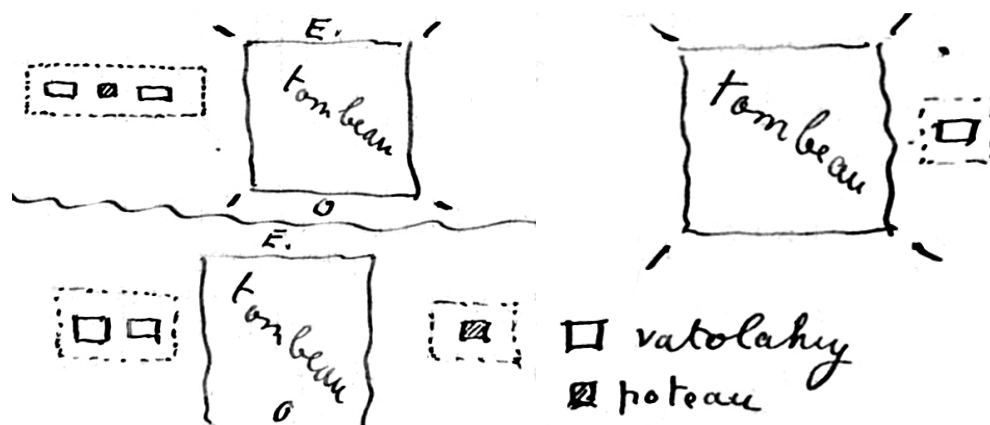 E.
tombeau
O
E.
tombeau
O
tombeau
vatolahy
poteau